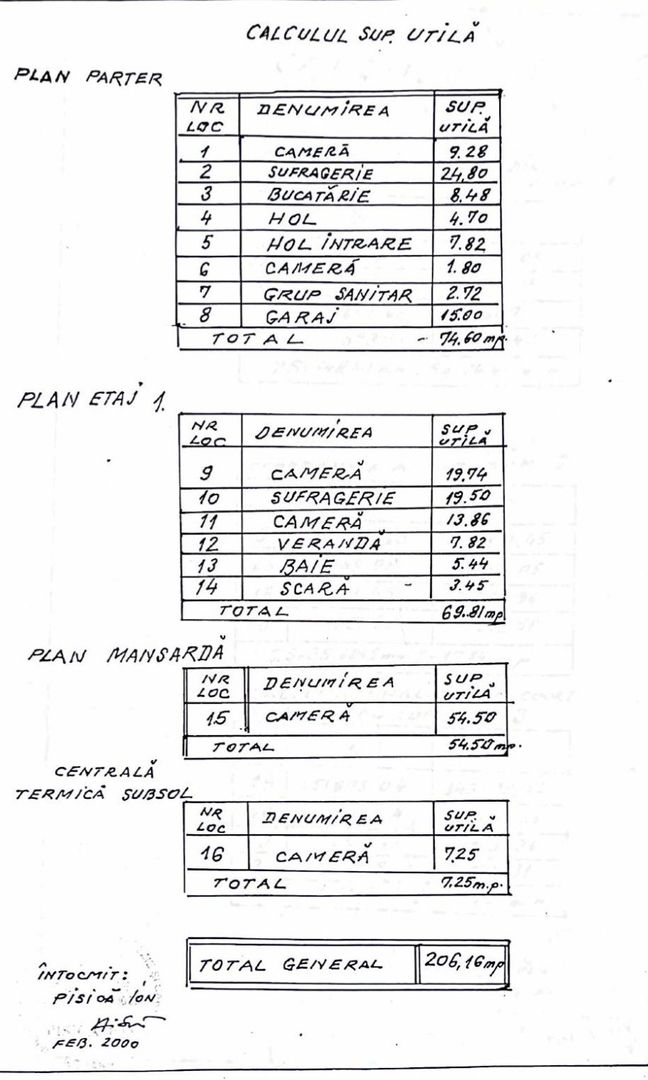 CALCULUL SUP. UTILĂ
PLAN PARTER
NR LOC DENUMIREA SUP. UTILĂ
1 CAMERĂ 9.28
2 SUFRAGERIE 24,80
3 BUCATĂRIE 8.48
4 HOL 4.70
5 HOL INTRARE 7.82
6 CAMERĂ 1.80
7 GRUP SANITAR 2.72
8 GARAJ 15.00
TOTAL - 74.60 mp.
PLAN ETAJ 1.
NR LOC DENUMIREA SUP UTILĂ
9 CAMERĂ 19.74
10 SUFRAGERIE 19.50
11 CAMERĂ 13.86
12 VERANDĂ 7.82
13 BAIE 5.44
14 SCARĂ - 3.45
TOTAL 69.81 mp
PLAN MANSARDĂ
NR LOC DENUMIREA SUP UTILĂ
15 CAMERĂ 54.50
TOTAL 54.50 mp.
CENTRALĂ
TERMICĂ SUBSOL
NR LOC DENUMIREA SUP. UTILĂ
16 CAMERĂ 7.25
TOTAL 7.25 m.p.
TOTAL GENERAL 206,16 mp
ÎNTOCMIT:
PISICĂ ION
FEB. 2000